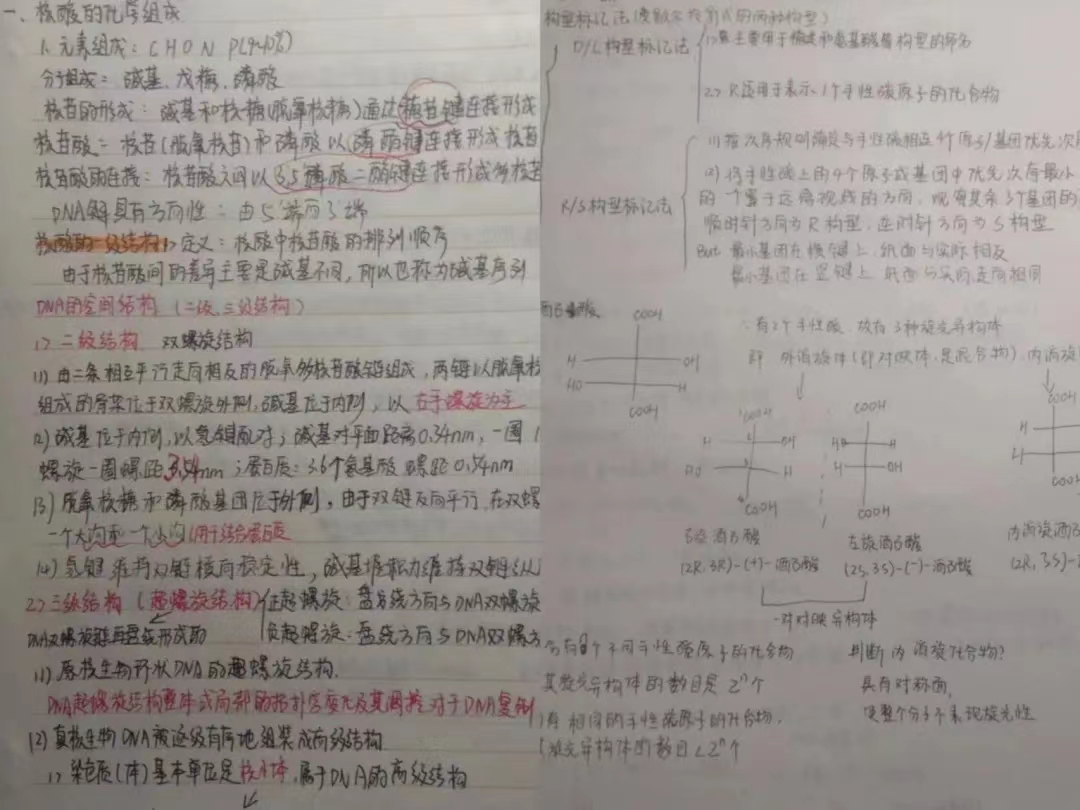 一、核酸的化学组成
1. 元素组成：C H O N P(9~10%)
分子组成：碱基、戊糖、磷酸
核苷的形成：碱基和核糖(脱氧核糖)通过糖苷键连接形成
核苷酸：核苷(脱氧核苷)和磷酸以磷酯键连接形成核苷
核苷酸的连接：核苷酸之间以3,5磷酸二酯键连接形成多核苷
DNA链具有方向性：由5'端向3'端
核酸的一级结构 1> 定义：核酸中核苷酸的排列顺序
由于核苷酸间的差异主要是碱基不同，所以也称为碱基序列
DNA的空间结构（二级、三级结构）
1> 二级结构 双螺旋结构
(1) 由二条相互平行走向相反的脱氧多核苷酸链组成，两链以脱氧核
组成的骨架位于双螺旋外侧，碱基位于内侧，以右手螺旋为主
(2) 碱基位于内侧，以氢键配对；碱基对平面距离0.34nm，一圈
螺旋一圈螺距3.54nm；蛋白质：3.6个氨基酸 螺距0.54nm
(3) 脱氧核糖和磷酸基团位于外侧，由于双链反向平行，在双螺
一个大沟和一个小沟 (用于结合蛋白质
(4) 氢键维持双链横向稳定性，碱基堆积力维持双链纵
2> 三级结构（超螺旋结构） 正超螺旋：盘绕方向与DNA双螺旋
DNA双螺旋链再盘绕形成的 负超螺旋：盘绕方向与DNA双螺旋方
(1) 原核生物环状DNA的超螺旋结构.
DNA超螺旋结构整体或局部的拓扑学变化及其调控对于DNA复制
(2) 真核生物DNA被逐级有序地组装成高级结构
1> 染色质(体)基本单位是核小体，属于DNA的高级结构
构型标记法
的两种构型)
D/L构型标记法
1> 主要用于糖类和氨基酸构型的命名
2> 只适用于表示1个手性碳原子的化合物
R/S构型标记法
(1) 按次序规则确定与手性碳相连4个原子/基团优先次
(2) 将手性碳上的4个原子或基团中优先次序最小
的一个置于远离视线的方向，观察其余3个基团的
顺时针方向为R构型，逆时针方向为S构型
But 最小基团在横键上，纸面与实际相反
最小基团在竖键上，纸面与实际走向相同
酒石酸
∴有2个手性碳 故有3种旋光异构体
即 外消旋体(即对映体，是混合物)，内消旋
COOH
H OH
HO H
COOH
COOH
H OH
HO H
COOH
COOH
HO H
H OH
COOH
COOH
H
H
COO
右旋酒石酸 左旋酒石酸 内消旋酒石
(2R,3R)-(+)-酒石酸 (2S,3S)-(-)-酒石酸 (2R,3S)-
一对对映异构体
个不同手性碳原子的化合物 判断内消旋化合物？
其旋光异构体的数目是2ⁿ个 具有对称面，
有相同的手性碳原子的化合物， 使整个分子不表现旋光性
旋光异构体的数目<2ⁿ个